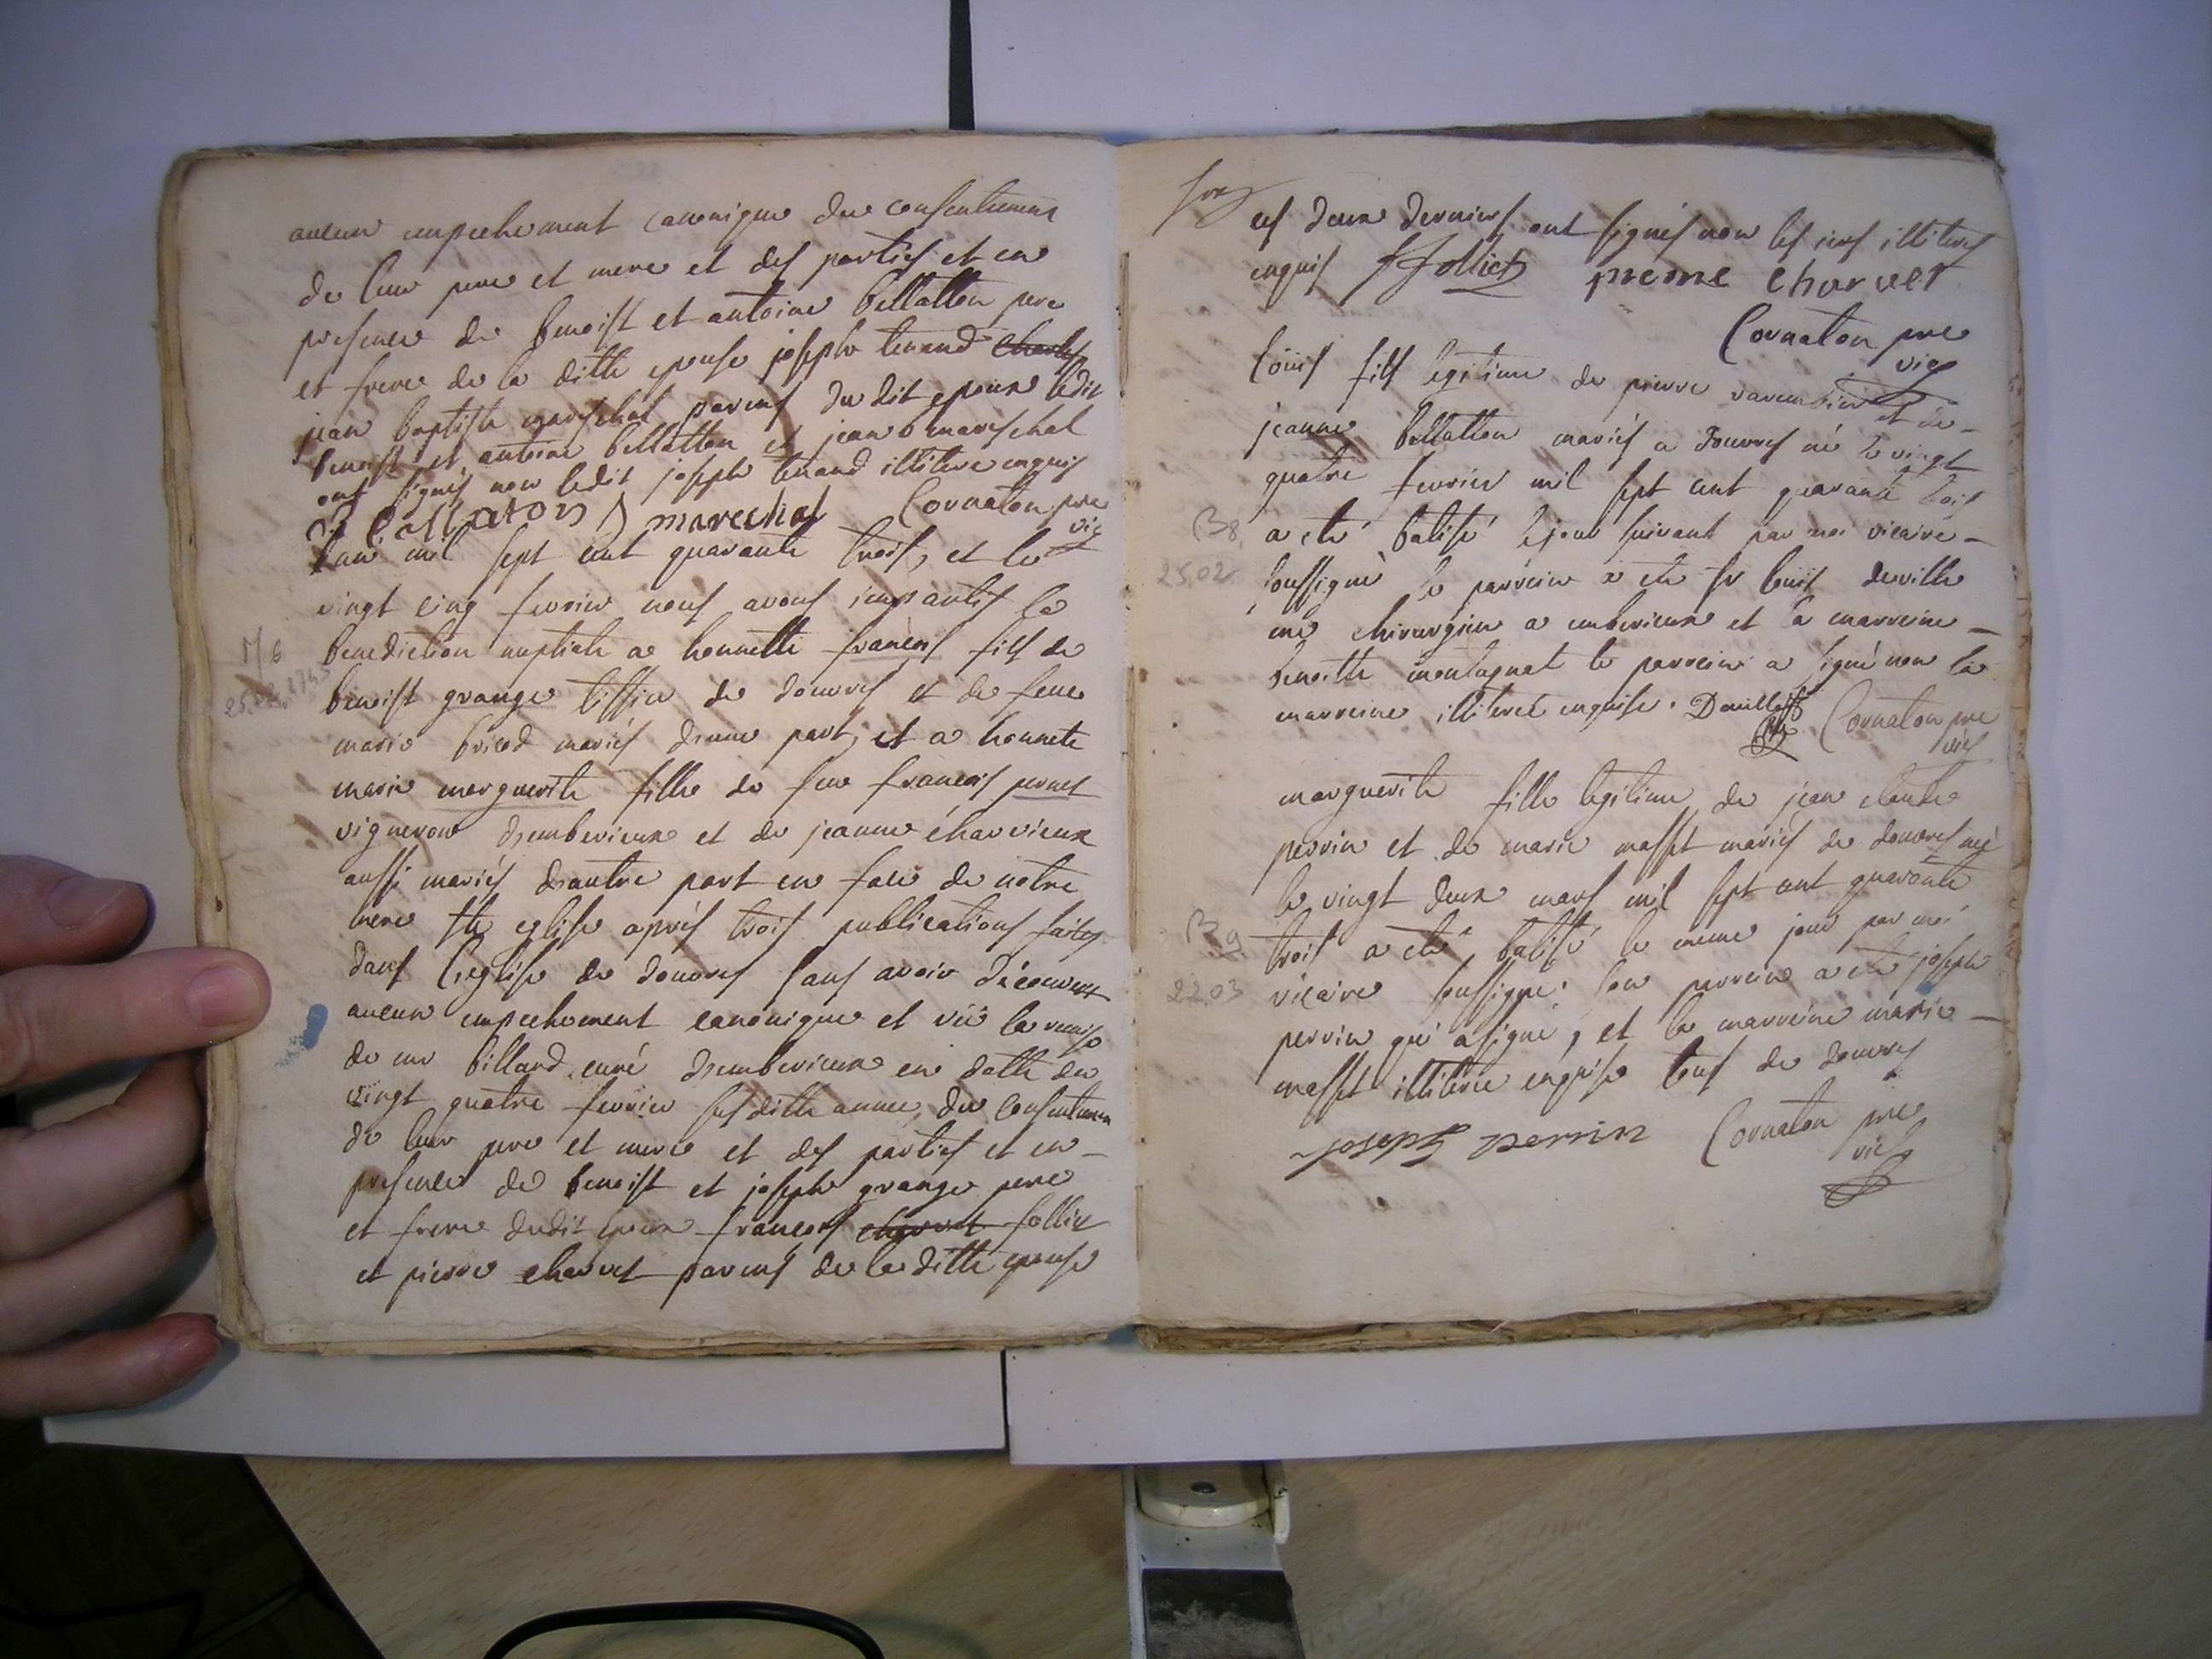 aucun empechement canonique du consentement
de leur pere et mere et des parties et en
presence de benoist et antoine bellatton pere
et frere de la ditte epouse joseph tenand
jean baptiste mareschal parens du dit epoux ledit
benoist et antoine bellatton et jean b mareschal
ont signés non ledit joseph tenand illitere enquis
marechal Cornaton pre
vic
L'an mil sept cent quarante trois, et le
vingt cinq fevrier nous avons impartis la
M6
25.02.1743
benediction nuptiale a honnette francois fils de
benoist grange tissier de douvres et de feue
marie briod mariés d'une part, et a honnete
marie marguerite fille de feu francois pernet
vigneron d'emberieux et de jeanne charvieux
aussi mariés d'autre part en face de nôtre
mere ste eglise aprés trois publications faites
dans l'eglise de douvres sans avoir découvert
aucun empechement canonique et vü la remise
de mr billard curé d'emberieux en datte du
vingt quatre fevrier susditte annee, du consentemen
de leur pere et mere et des parties et en
presence de benoist et joseph grange pere
et frere dudit epoux francois charvet folliet
et pierre charvet parens de la ditte epouse
ces deux derniers ont signés non les illiteres
enquis folliet pierre charvet
Cornaton pre
vic
Loüis fils legitime de pierre et de
jeanne bellatton mariés a Douvres né le vingt
quatre fevrier mil sept cent quarante trois
B8
25.02
a eté batisé le jour suivant par moi vicaire
soussigné le parrein a eté sr loüis deville
me chirurgien a emberieux et la marreine
benoitte montagnat le parrein a signé non la
marreine illiteree enquise. Deville Cornaton pre
vic
marguerite fille legitime de jean claude
perrin et de marie masset mariés de douvres née
le vingt deux mars mil sept cent quarante
B9
22.03
trois a eté batisé le meme jour par moi
vicaire soussigné: son parrein a eté joseph
perrin qui a signé, et la marreine marie
masset illiterée enquise tous de douvres
joseph perrin Cornaton pre
vic